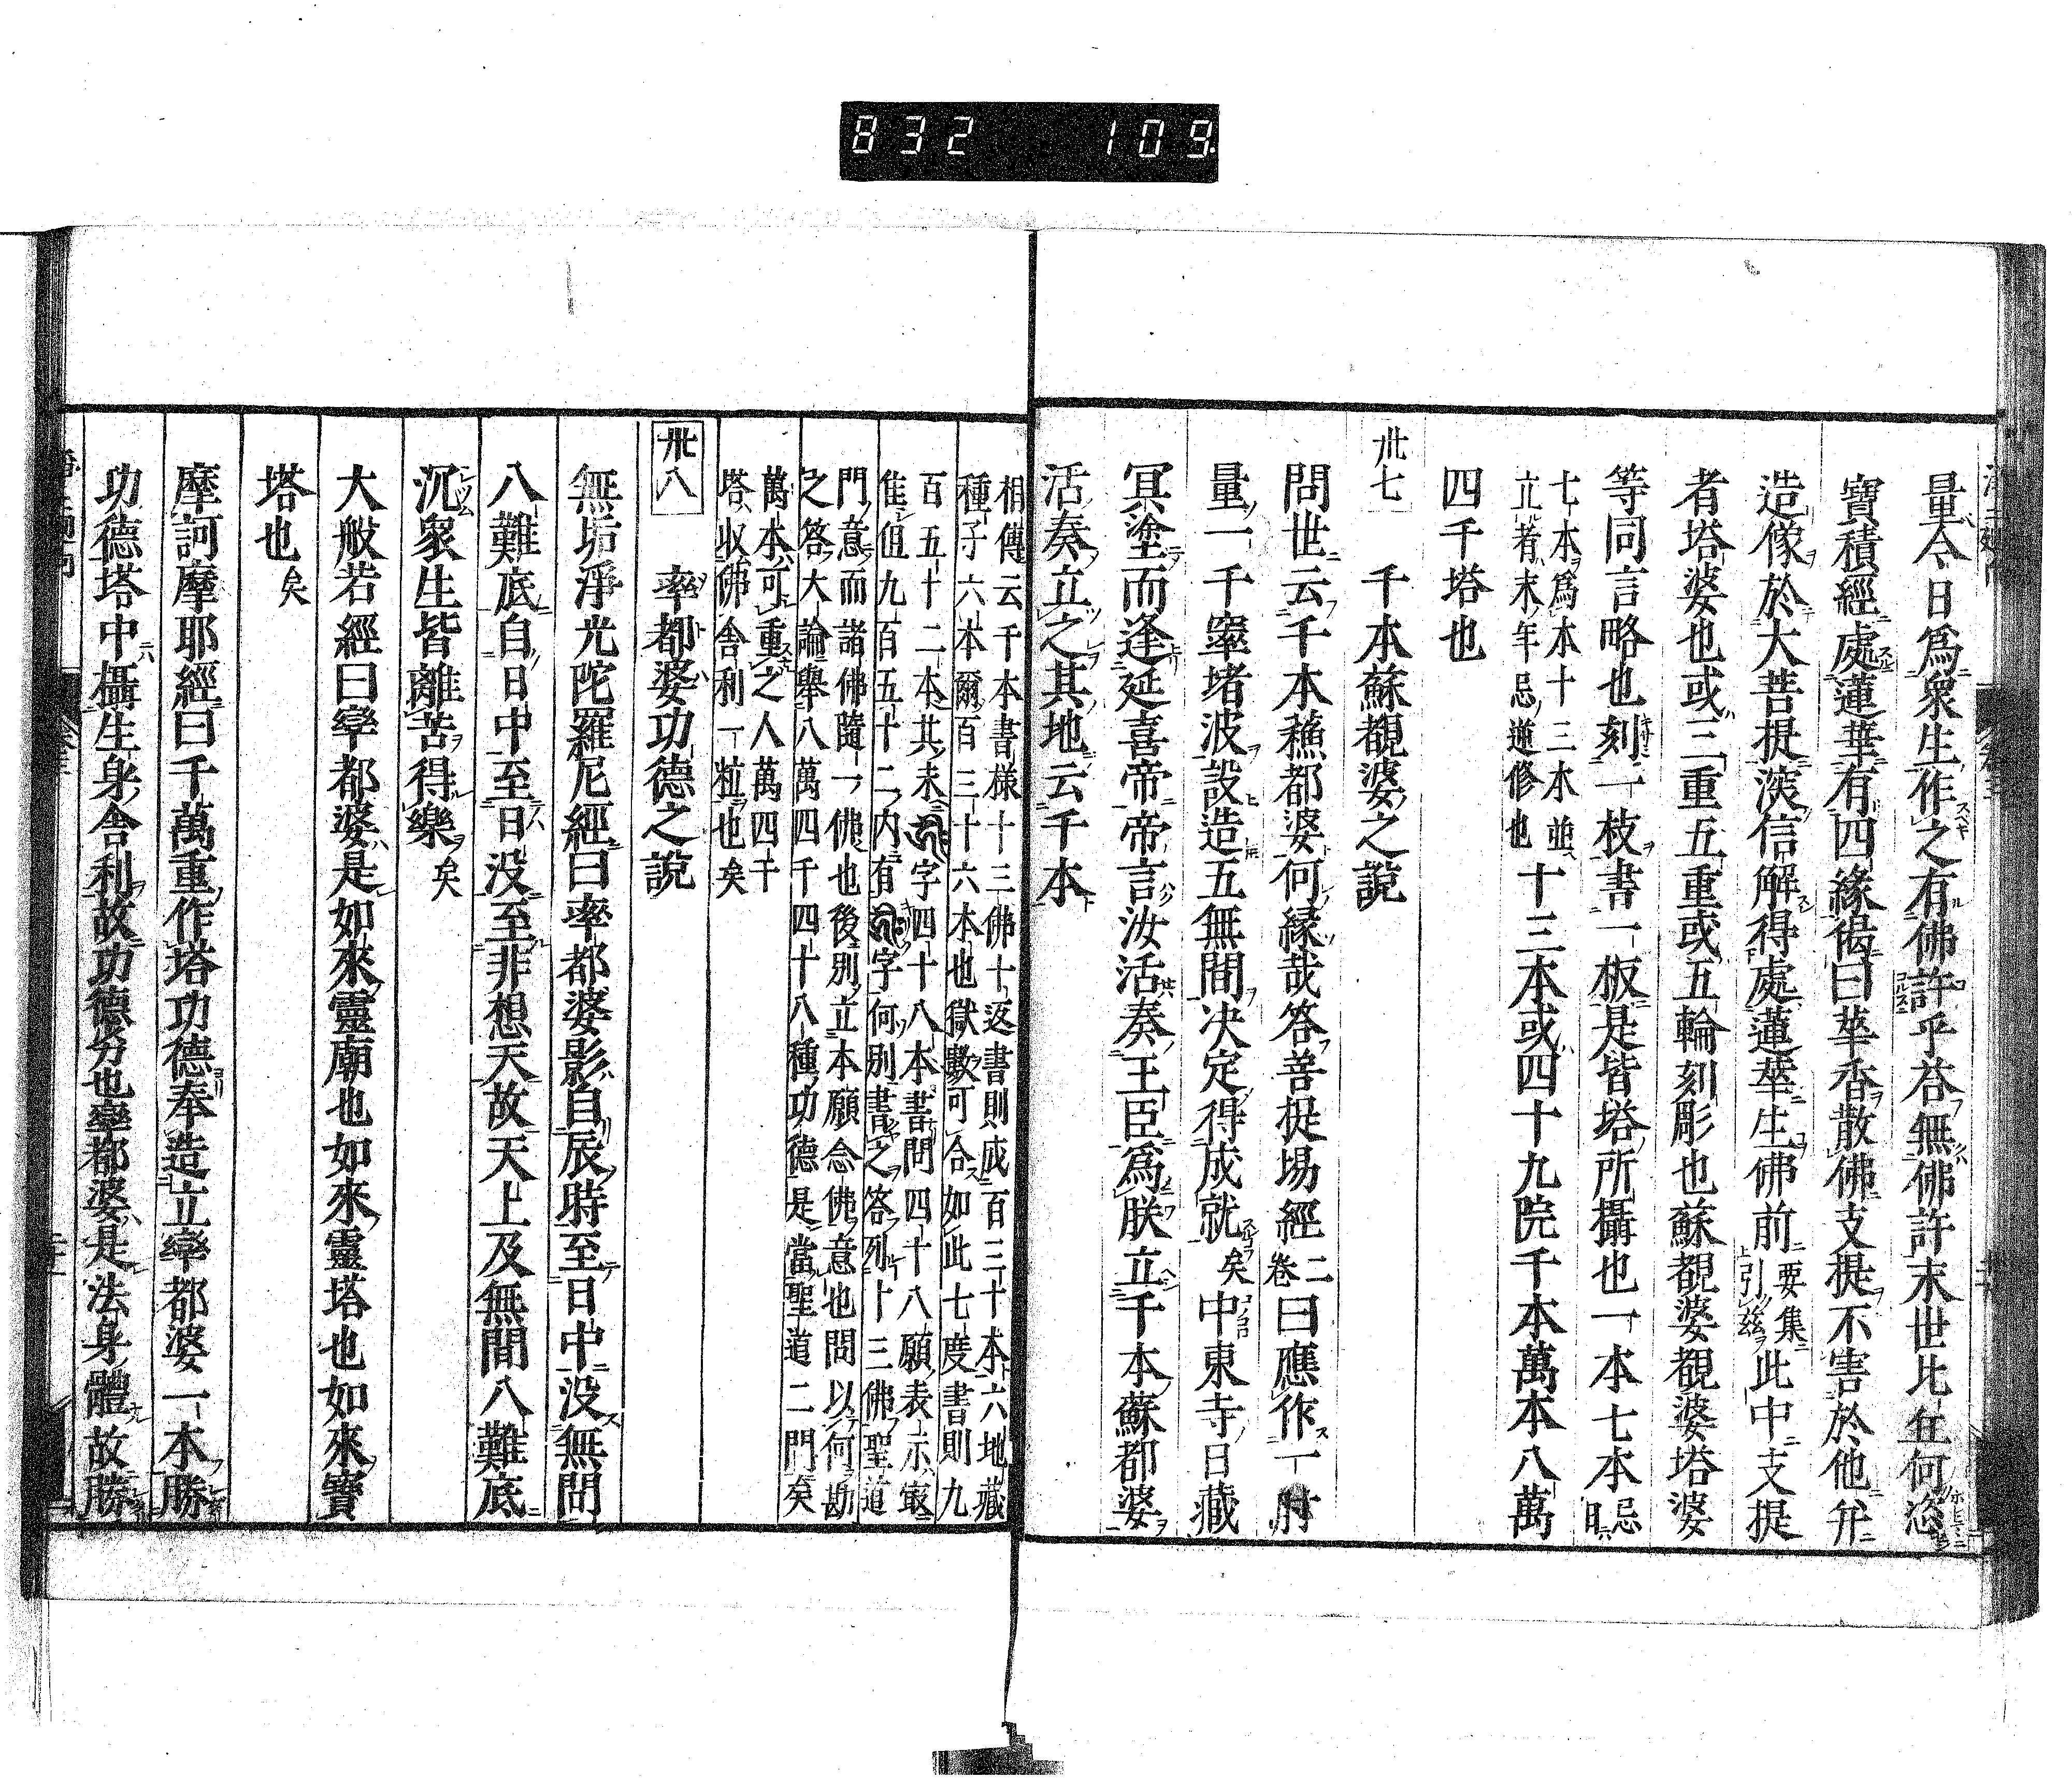 832 109
量今日爲衆生作之有佛許乎答無佛許末世比丘何恣
寶積經處蓮華有四緣偈曰華香散佛支提不害於他并
造像於大菩提深信解得處蓮華生佛前要集二上引茲此中支提
者塔婆也或三重五重或五輪刻彫也蘇覩婆覩婆塔婆
等同言略也刻一枝書一板是皆塔所攝也一本七本忌日
七本爲本十三本並
立者末年忌逆修也十三本或四十九院千本萬本八萬
四千塔也
卅七 千本蘇覩婆之說
問世云千本蘓都婆何縁哉答菩提場經卷二曰應作一肘
量一千窣堵波設造五無間决定得成就矣中東寺日藏
冥塗而逢延喜帝帝言汝活奏王臣爲朕立千本蘇都婆
活奏立之其地云千本
相傳云千本書樣十三佛十返書則成百三十本六地藏
種子六本爾百三十六本也獄數可合如此七度書則九
百五十二本其末字四十八本書問四十八願表示最
隹但九百五十二内有字何別書之答列十三佛聖道
門意而諸佛隨一佛也後別立本願念佛意也問以何勘
之答大論舉八萬四千四十八種功德是當聖道二門矣
萬本可重之人萬四千
塔收佛舍利一粒也矣
卅八 率都婆功德之說
無垢淨光陀羅尼經曰率都婆影自辰時至日中没無間
八難底自日中至日没至非想天故天上及無間八難底
沉衆生皆離苦得樂矣
大般若經曰率都婆是如來靈廟也如來靈塔也如來寶
塔也矣
摩訶摩耶經曰千萬重作塔功德奉造立率都婆一本勝
功德塔中攝生身舍利故功德劣也率都婆是法身體故勝